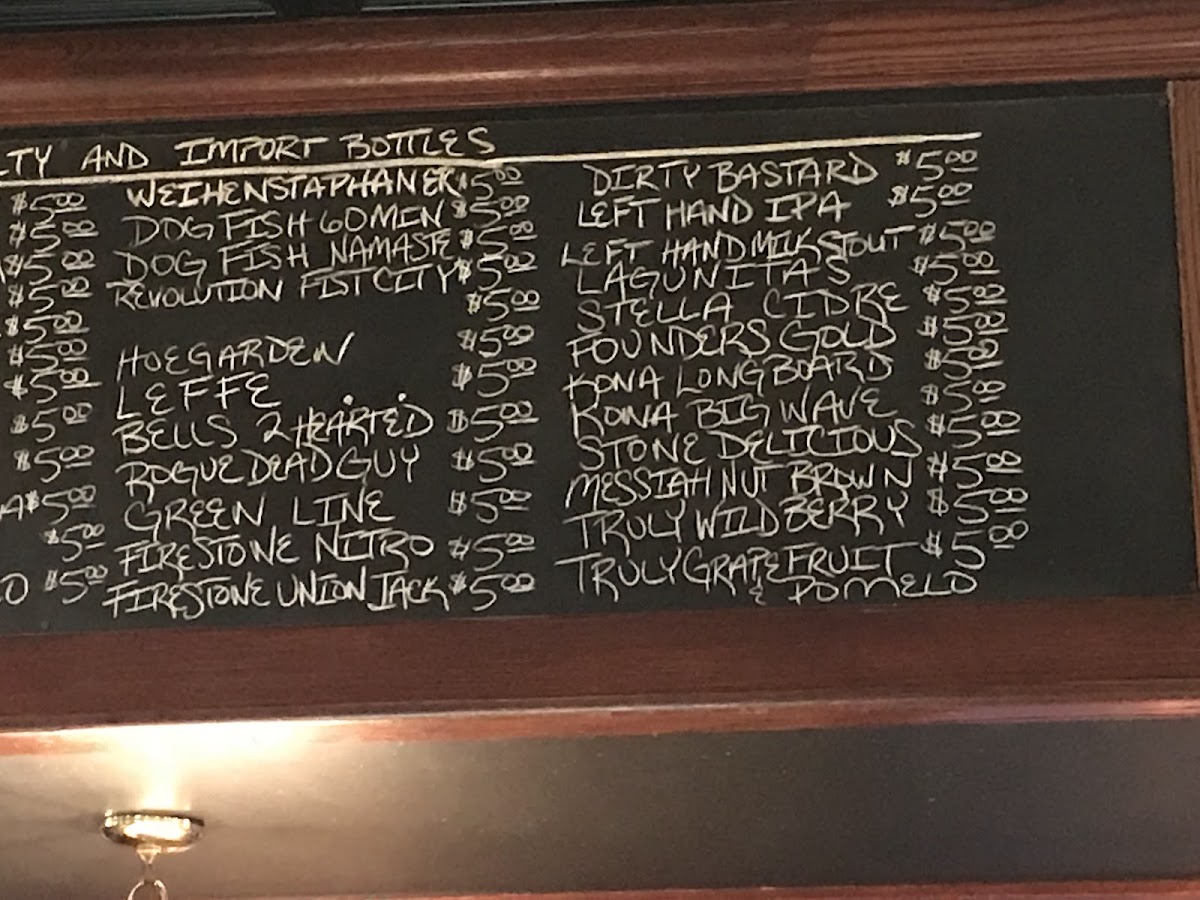 LTY AND IMPORT BOTTLES
$5.00
$5.00
$5.00
$5.00
$5.00
$5.00
$5.00
$5.00
$5.00
A $5.00
$5.00
O $5.00
WEIHENSTAPHANER $5.00
DOG FISH 60 MIN $5.00
DOG FISH NAMASTE $5.00
REVOLUTION FIST CITY $5.00
$5.00
HOEGARDEN $5.00
LEFFE $5.00
BELLS 2 HEARTED $5.00
ROGUE DEAD GUY $5.00
GREEN LINE $5.00
FIRESTONE NITRO $5.00
FIRESTONE UNION JACK $5.00
DIRTY BASTARD $5.00
LEFT HAND IPA $5.00
LEFT HAND MILK STOUT $5.00
LAGUNITAS $5.00
STELLA CIDRE $5.00
FOUNDERS GOLD $5.00
KONA LONGBOARD $5.00
KONA BIG WAVE $5.00
STONE DELICIOUS $5.00
MESSIAH NUT BROWN $5.00
TRULY WILD BERRY $5.00
TRULY GRAPEFRUIT $5.00
& POMELO